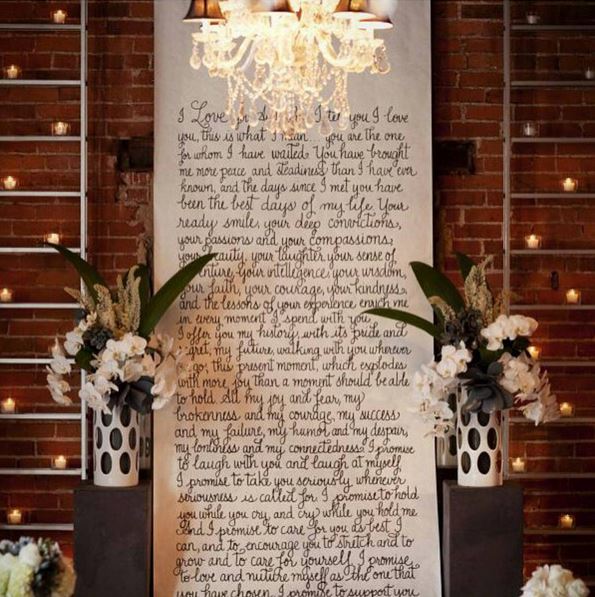 I Love I tell you I love
you, this is what I mean... you are the one
for whom I have waited. You have brought
me more peace and steadiness than I have ever
known, and the days since I met you have
been the best days of my life. Your
ready smile, your deep convictions,
your passions and your compassions,
your beauty, your laughter your sense of
your intellegence, your wisdom,
your faith, your courage, your kindness,
and the lessons of your experience, enrich me
in every moment I spend with you
I offer you my history, with its pride and
my future, walking with you wherever
go; this present moment, which explodes
with more joy than a moment should be able
to hold. All my joy and fear, my
brokenness and my courage, my success
and my failure, my humor and my despair,
my lonliness and my connectedness. I promise
to laugh with you and laugh at myself
I promise to take you seriously whenever
seriousness is called for. I promise to hold
you while you cry, and cry while you hold me
And I promise to care for you as best I
can, and to encourage you to stretch and to
grow and to care for yourself. I promise
to love and nuture myself as the one that
you have chosen. I promise to support you